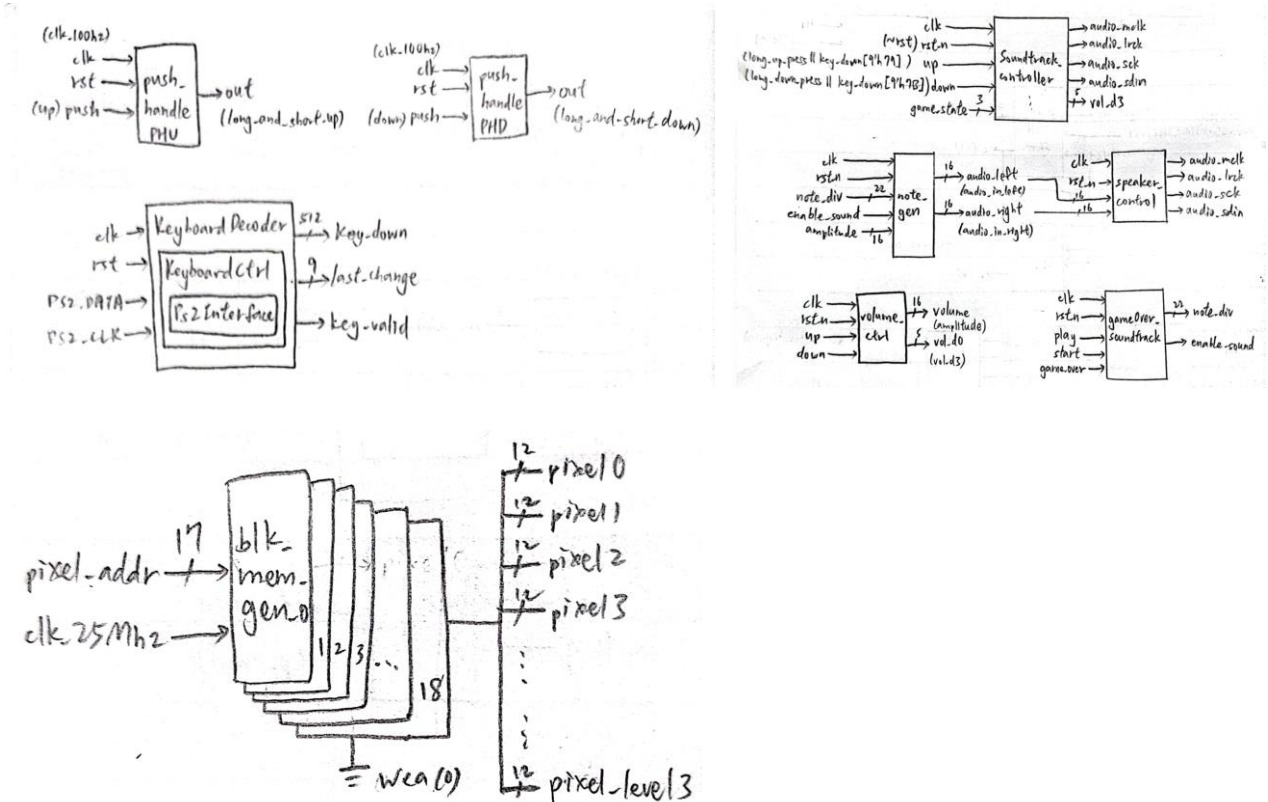 (clk_100hz)
clk
rst
(up) push
push_
handle
PHU
out
(long_and_short_up)
(clk_100hz)
clk
rst
(down) push
push_
handle
PHD
out
(long_and_short_down)
clk
rst
PS2_DATA
PS2_CLK
KeyboardDecoder
KeyboardCtrl
Ps2Interface
512
key_down
9
last_change
key_valid
clk
(~rst) rst_n
(long_up_press || key_down[9'h79]) up
(long_down_press || key_down[9'h7B]) down
game_state 3
Soundtrack_
controller
⋮
audio_mclk
audio_lrck
audio_sck
audio_sdin
5
vol_d3
clk
rst_n
note_div 22
enable_sound
amplitude 16
note_
gen
16
audio_left
(audio_in_left)
16
audio_right
(audio_in_right)
clk
rst_n
16
16
speaker_
control
audio_mclk
audio_lrck
audio_sck
audio_sdin
clk
rst_n
up
down
volume_
ctrl
16
volume
(amplitude)
5
vol_d0
(vol_d3)
clk
rst_n
play
start
game_over
gameOver_
soundtrack
22
note_div
enable_sound
pixel_addr 17
clk_25Mhz
blk_
mem_
gen_0
1
2
3
...
18
wea(0)
12
pixel0
12
pixel1
12
pixel2
12
pixel3
12
pixel_level3